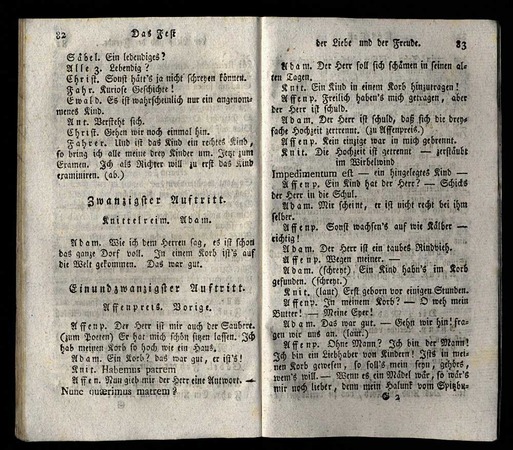 82 Das Fest
Säbel. Ein lebendiges?
Alle 3. Lebendig?
Christ. Sonst hätt's ja nicht schreyen können.
Fahr. Kuriose Geschichte!
Ewald. Es ist wahrscheinlich nur ein angenom-
menes Kind.
Ant. Versteht sich.
Christ. Gehen wir noch einmal hin.
Fahrer. Und ist das Kind ein rechtes Kind,
so bring ich alle meine drey Kinder um. Jetzt zum
Examen. Ich als Dichter will zu erst das Kind
examiniren. (ab.)
Zwanzigster Auftritt.
Knittelreim. Adam.
Adam. Wie ich dem Herren sag, es ist schon
das ganze Dorf voll. In einem Korb ist's auf
die Welt gekommen. Das war gut.
Einundzwanzigster Auftritt.
Affenpreis. Vorige.
Affenp. Der Herr ist mir auch der Saubere.
(zum Poeten) Er hat mich schön sitzen lassen. Ich
hab meinen Korb so hoch wie ein Haus.
Adam. Ein Korb? das war gut, er ist's!
Knit. Habemus patrem
Affen. Nun gieb mir der Herr eine Antwort. —
Nunc quærimus matrem?
der Liebe und der Freude. 83
Adam. Der Herr soll sich schämen in seinen al-
ten Tagen.
Knit. Ein Kind in einem Korb hinzutragen!
Affenp. Freilich haben's mich getragen, aber
der Herr ist schuld.
Adam. Der Herr ist schuld, daß sich die drey-
fache Hochzeit zertrennt. (zu Affenpreis.)
Affenp. Kein einzige war in mich gebrennt.
Knit. Die Hochzeit ist getrennt — zerstäubt
im Wirbelwind
Impedimentum est — ein hingelegtes Kind —
Affenp. Ein Kind hat der Herr? — Schicks
der Herr in die Schul.
Adam. Mir scheint, er ist nicht recht bei ihm
selber.
Affenp. Sonst wachsen's auf wie Kälber —
richtig!
Adam. Der Herr ist ein taubes Rindvieh.
Affenp. Wegen meiner. —
Adam. (schreyt) Ein Kind habn's im Korb
gefunden. (schreyt.)
Knit. (laut) Erst geborn vor einigen Stunden.
Affenp. In meinem Korb? — O weh mein
Butter! — Meine Eyer!
Adam. Das war gut. — Gehn wir hin! fra-
gen wir uns an. (laut.)
Affenp. Ohne Mann? Ich bin der Mann!
Ich bin ein Liebhaber von Kindern! Ists in mei-
nen Korb gewesen, so soll's mein seyn, gehörs,
wem's will. — Wenn es ein Mädel wär, so wär's
mir noch lieber, denn mein Halunk vom Spitzbu-
G 2